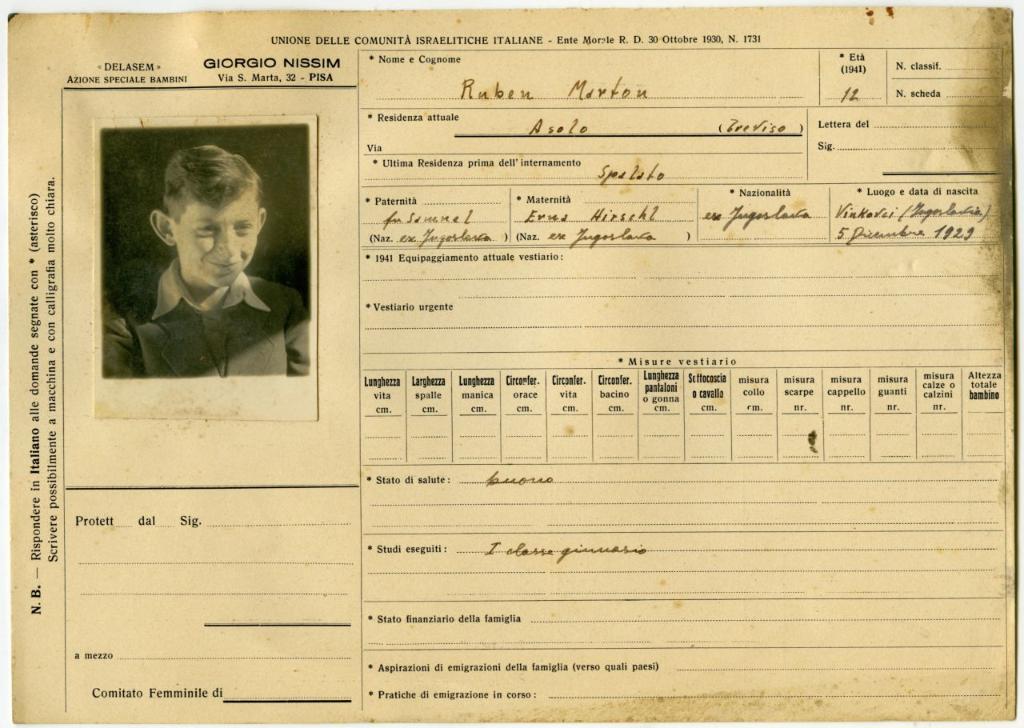 UNIONE DELLE COMUNITÀ ISRAELITICHE ITALIANE - Ente Morale R. D. 30 Ottobre 1930, N. 1731
« DELASEM »
AZIONE SPECIALE BAMBINI
GIORGIO NISSIM
Via S. Marta, 32 - PISA
N. B. — Rispondere in Italiano alle domande segnate con * (asterisco)
Scrivere possibilmente a macchina e con calligrafia molto chiara.
* Nome e Cognome
Ruben Marton
* Età
(1941)
12
N. classif.
N. scheda
* Residenza attuale
Asolo (Treviso)
Via
Lettera del
Sig.
* Ultima Residenza prima dell'internamento
Spalato
* Paternità
fu Samuel
(Naz. ex Jugoslavia )
* Maternità
Erna Hirschl
(Naz. ex Jugoslavia )
* Nazionalità
ex Jugoslavia
* Luogo e data di nascita
Vinkovci (Jugoslavia)
5 Dicembre 1929
* 1941 Equipaggiamento attuale vestiario:
* Vestiario urgente
* Misure vestiario
Lunghezza vita cm.
Larghezza spalle cm.
Lunghezza manica cm.
Circonfer. orace cm.
Circonfer. vita cm.
Circonfer. bacino cm.
Lunghezza pantaloni o gonna cm.
Sottocoscia o cavallo cm.
misura collo cm.
misura scarpe nr.
misura cappello nr.
misura guanti nr.
misura calze o calzini nr.
Altezza totale bambino
* Stato di salute: buono
* Studi eseguiti: I classe ginnasio
* Stato finanziario della famiglia
* Aspirazioni di emigrazioni della famiglia (verso quali paesi)
* Pratiche di emigrazione in corso:
Protett dal Sig.
a mezzo
Comitato Femminile di